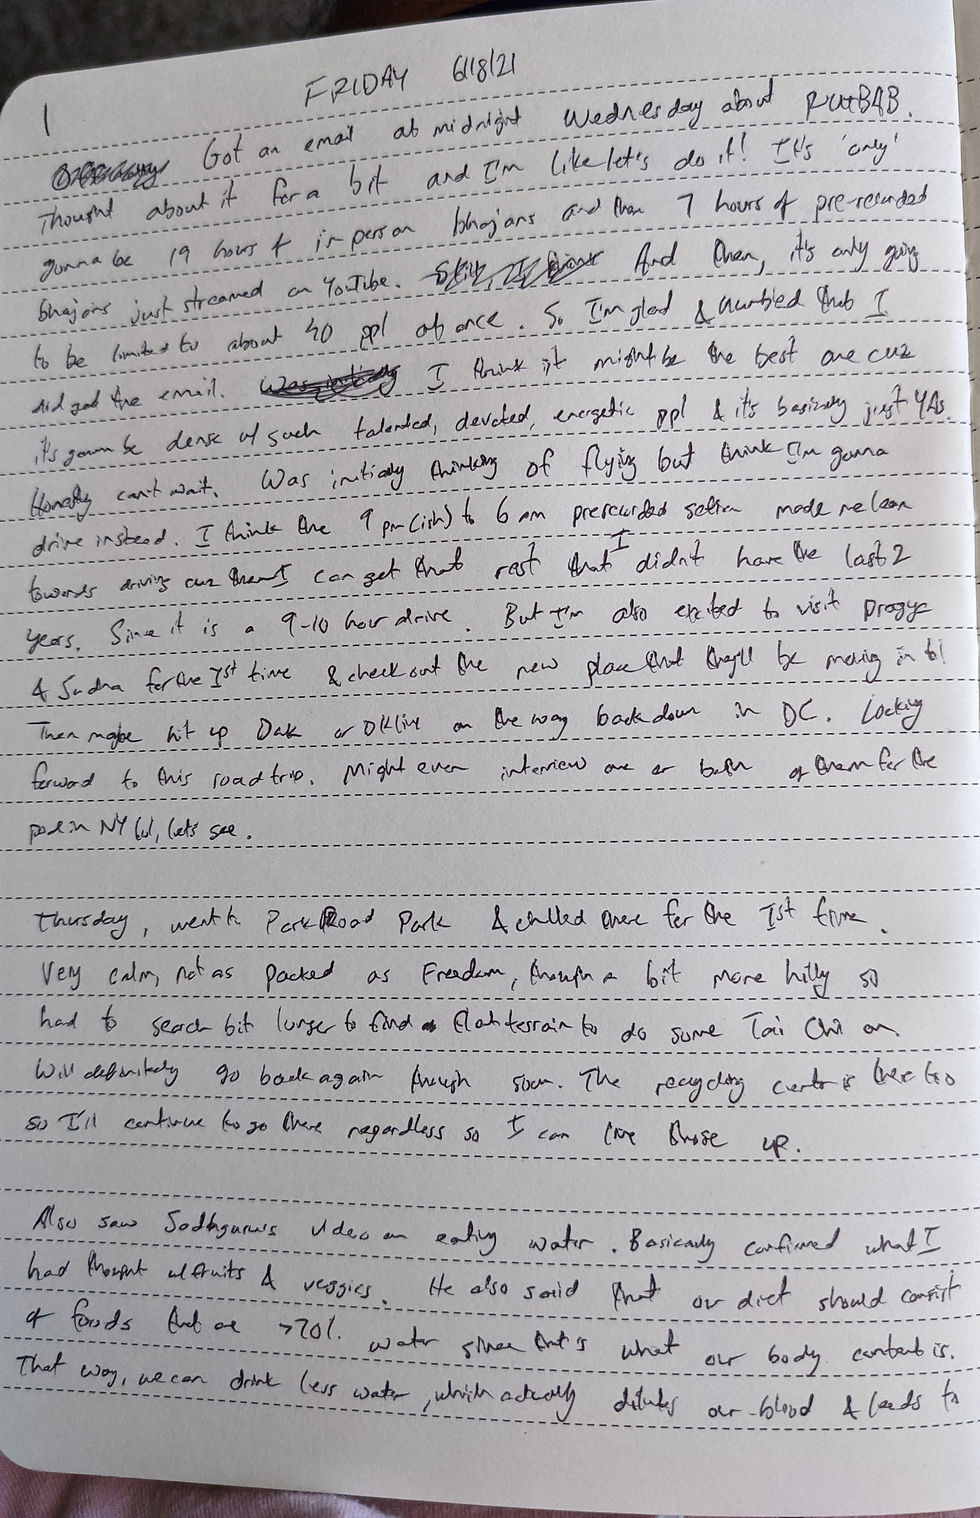 1
FRIDAY 6/18/21
Got an email at midnight Wednesday about
Thought about it for a bit and I'm like let's do it! It's 'only'
gonna be 19 hours of in person bhajans and then 7 hours of pre-recorded
bhajans just streamed on YouTube. And then, it's only going
to be limited to about 40 ppl at once. So I'm glad & humbled that I
did get the email. I think it might be the best one cuz
it's gonna be dense w/ such talented, devoted, energetic ppl & it's basically just YAs.
Honestly can't wait. Was initially thinking of flying but think I'm gonna
drive instead. I think the 9 pm (ish) to 6 am prerecorded section made me lean
towards driving cuz then I can get that rest that I didn't have the last 2
years. Since it is a 9-10 hour drive. But I'm also excited to visit Pragya
& for the 1st time & check out the new place that they'll be moving in to!
Then maybe hit up or on the way back down in DC. Looking
forward to this roadtrip. Might even interview one or both of them for the
pod in NY lol, let's see.
Thursday, went to Park Road Park & chilled there for the 1st time.
Very calm, not as packed as Freedom, though a bit more hilly so
had to search bit longer to find flat terrain to do some Tai Chi on.
Will definitely go back again though soon. The recycling center is there too
so I'll continue to go there regardless so I can those up.
Also saw Sadhguru's video on eating water. Basically confirmed what I
had thought w/ fruits & veggies. He also said that our diet should consist
of foods that are >70% water since that's what our body content is.
That way, we can drink less water, which actually dilutes our blood & leads to